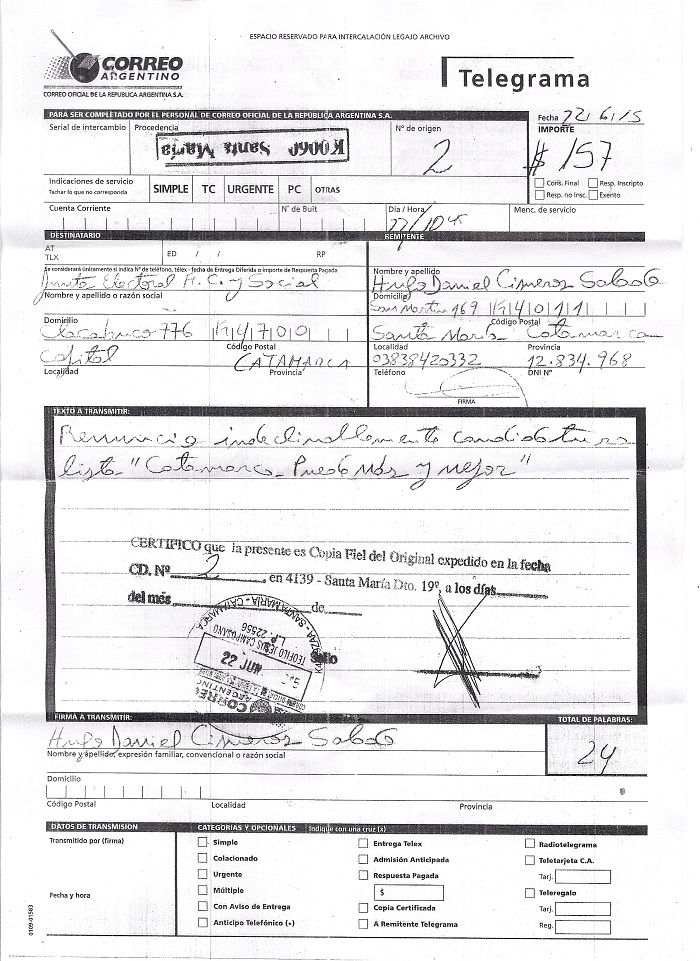 ESPACIO RESERVADO PARA INTERCALACIÓN LEGAJO ARCHIVO
CORREO
ARGENTINO
CORREO OFICIAL DE LA REPUBLICA ARGENTINA S.A.
Telegrama
PARA SER COMPLETADO POR EL PERSONAL DE CORREO OFICIAL DE LA REPÚBLICA ARGENTINA S.A.
Fecha 22/6/15
Serial de intercambio Procedencia Nº de origen IMPORTE
K0060 Santa María
2 $ 157
Indicaciones de servicio
Tachar lo que no corresponda
SIMPLE TC URGENTE PC OTRAS
Cons. Final Resp. Inscripto
Resp. no Insc. Exento
Cuenta Corriente Nº de Buit Día / Hora Menc. de servicio
22/10
DESTINATARIO REMITENTE
AT
TLX ED / / RP
Se considerará únicamente si indica Nº de teléfono, télex - fecha de Entrega Diferida o importe de Respuesta Pagada
Electoral y Social
Nombre y apellido o razón social
Nombre y apellido
Hugo Daniel Cisneros
Domicilio
San Martin 169 4 0 1 1
Código Postal
Domicilio
Chacabuco 776 4 7 0 0
Código Postal
Santa María Catamarca
Localidad Provincia
Capital CATAMARCA
Localidad Provincia
03838420332 12.834.968
Teléfono DNI Nº
FIRMA
TEXTO A TRANSMITIR:
Renuncio indeclinablemente candidatura
lista "Catamarca Puede Más y mejor"
CERTIFICO que la presente es Copia Fiel del Original expedido en la fecha
CD. Nº 2 en 4139 - Santa María Dto. 19º, a los días
del més de
Sello
SANTA MARIA - CATAMARCA
L.P. 22556
TEOFILO JESUS CAMPUSANO
22 JUN
CORREO
ARGENTINO
FIRMA A TRANSMITIR: TOTAL DE PALABRAS:
Hugo Daniel Cisneros
24
Nombre y apellido, expresión familiar, convencional o razón social
Domicilio
Código Postal Localidad Provincia
DATOS DE TRANSMISION CATEGORÍAS Y OPCIONALES Indique con una cruz (x)
Transmitido por (firma)
Simple Entrega Telex Radiotelegrama
Colacionado Admisión Anticipada Teletarjeta C.A.
Urgente Respuesta Pagada Tarj.
Múltiple $ Teleregalo
Fecha y hora
Con Aviso de Entrega Copia Certificada Tarj.
Anticipo Telefónico (+) A Remitente Telegrama Reg.
0109-01583